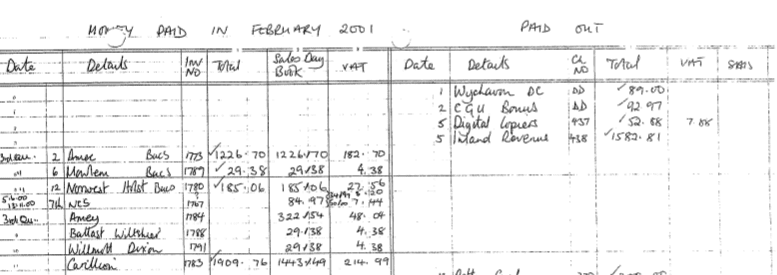 MONEY PAID IN FEBRUARY 2001 PAID OUT
Date Details Inv NO Total Sales Day Book VAT Date Details CL NO Total VAT
1 Wychavon DC DD 89.00
2 CGU Bonus DD 92.97
5 Digital Copiers 437 52.88 7.88
5 Inland Revenue 438 1582.81
2 Amec Bacs 1773 1226.70 1226/70 182.70
6 Mowlem Bacs 1789 29.38 29/38 4.38
12 Norwest Holst Bacs 1780 185.06 185/06 27.56
NCS 1767 84.97 7.44
Amey 1784 322/54 48.04
Balfast Wiltshier 1788 29/38 4.38
Willmott Dixon 1791 29/38 4.38
Carillion 1783 1909.76 1443/49 214.99